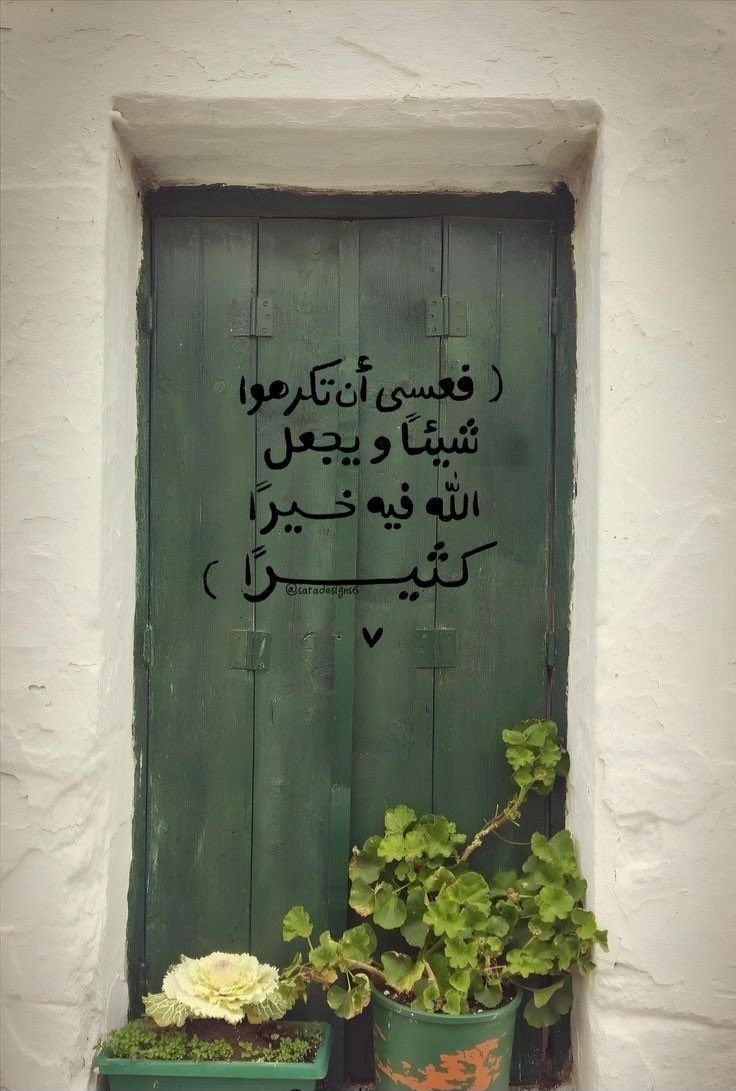 ( فعسى أن تكرهوا
شيئاً و يجعل
الله فيه خيرًا
كثيرًا )
@saradesigns6